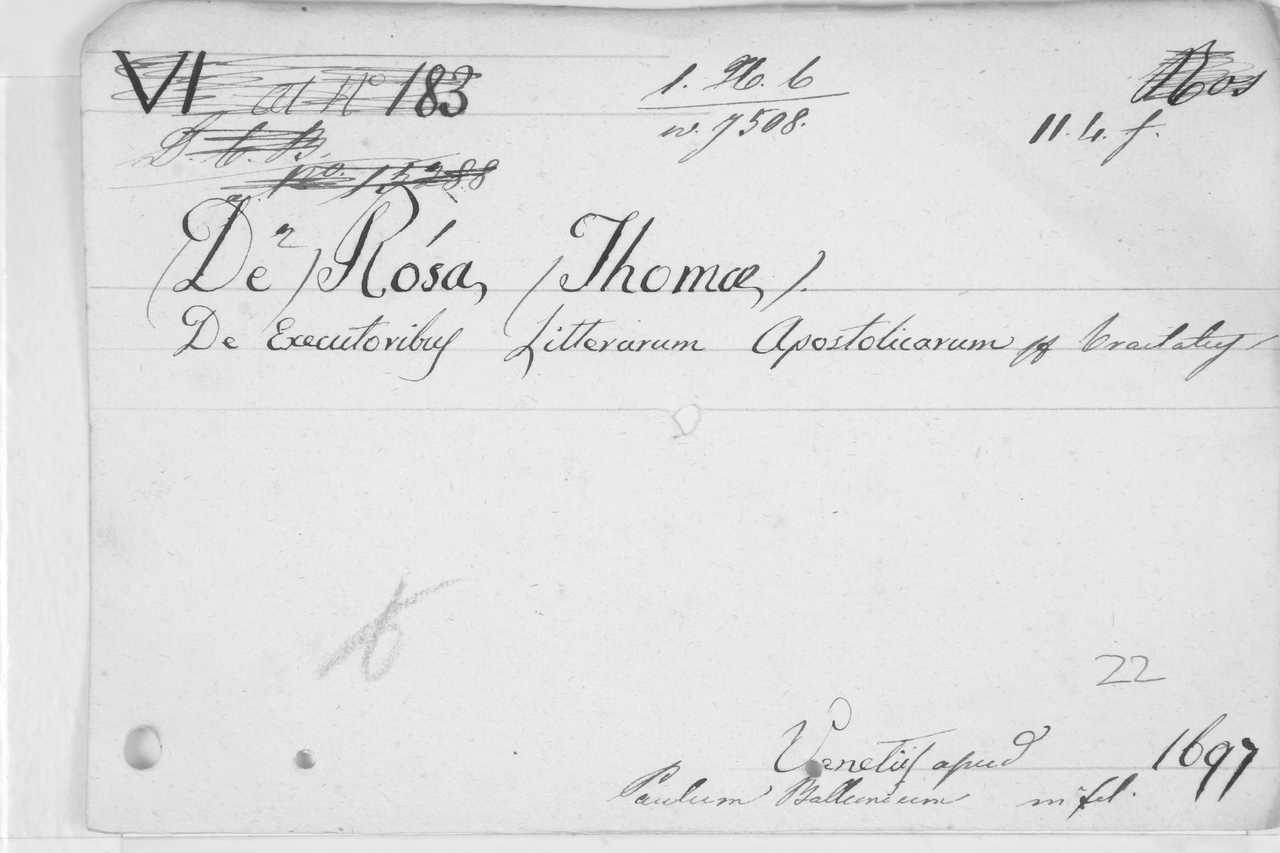 VI at No 183
1. H. 6
Ros
D. 6. B.
w. 7508.
11. 4. f.
No. 15288
(De) Rósa, (Thomæ).
De Executoribus Litterarum Apostolicarum tractatus
22
Venetiis apud 1697
Paulum Balleonium in fol.